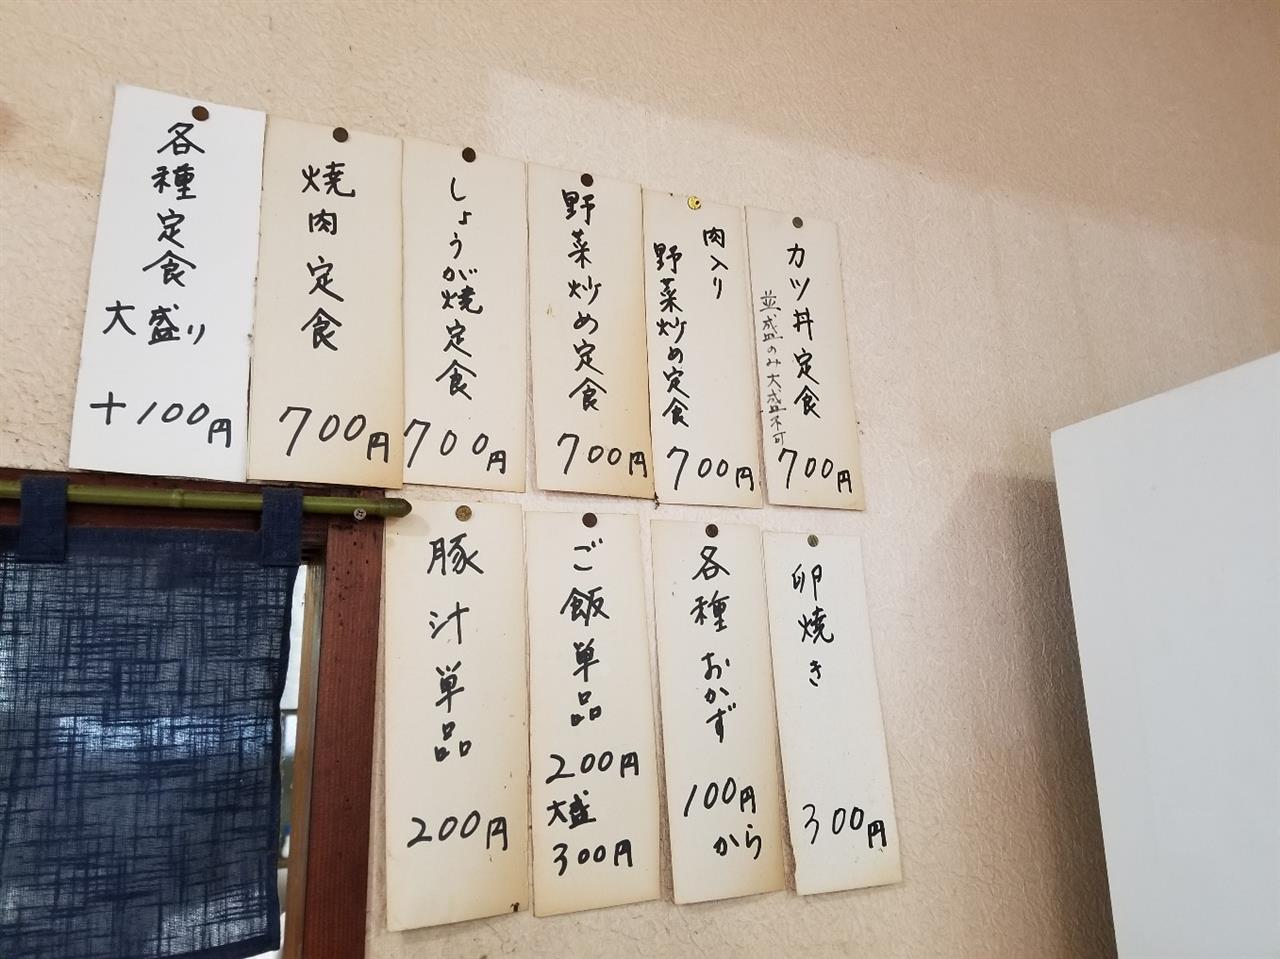 カツ丼定食
並盛のみ大盛不可
700円
肉入り
野菜炒め定食
700円
野菜炒め定食
700円
しょうが焼定食
700円
焼肉定食
700円
各種定食
大盛り
+100円
卵焼き
300円
各種おかず
100円
から
ご飯単品
200円
大盛
300円
豚汁単品
200円